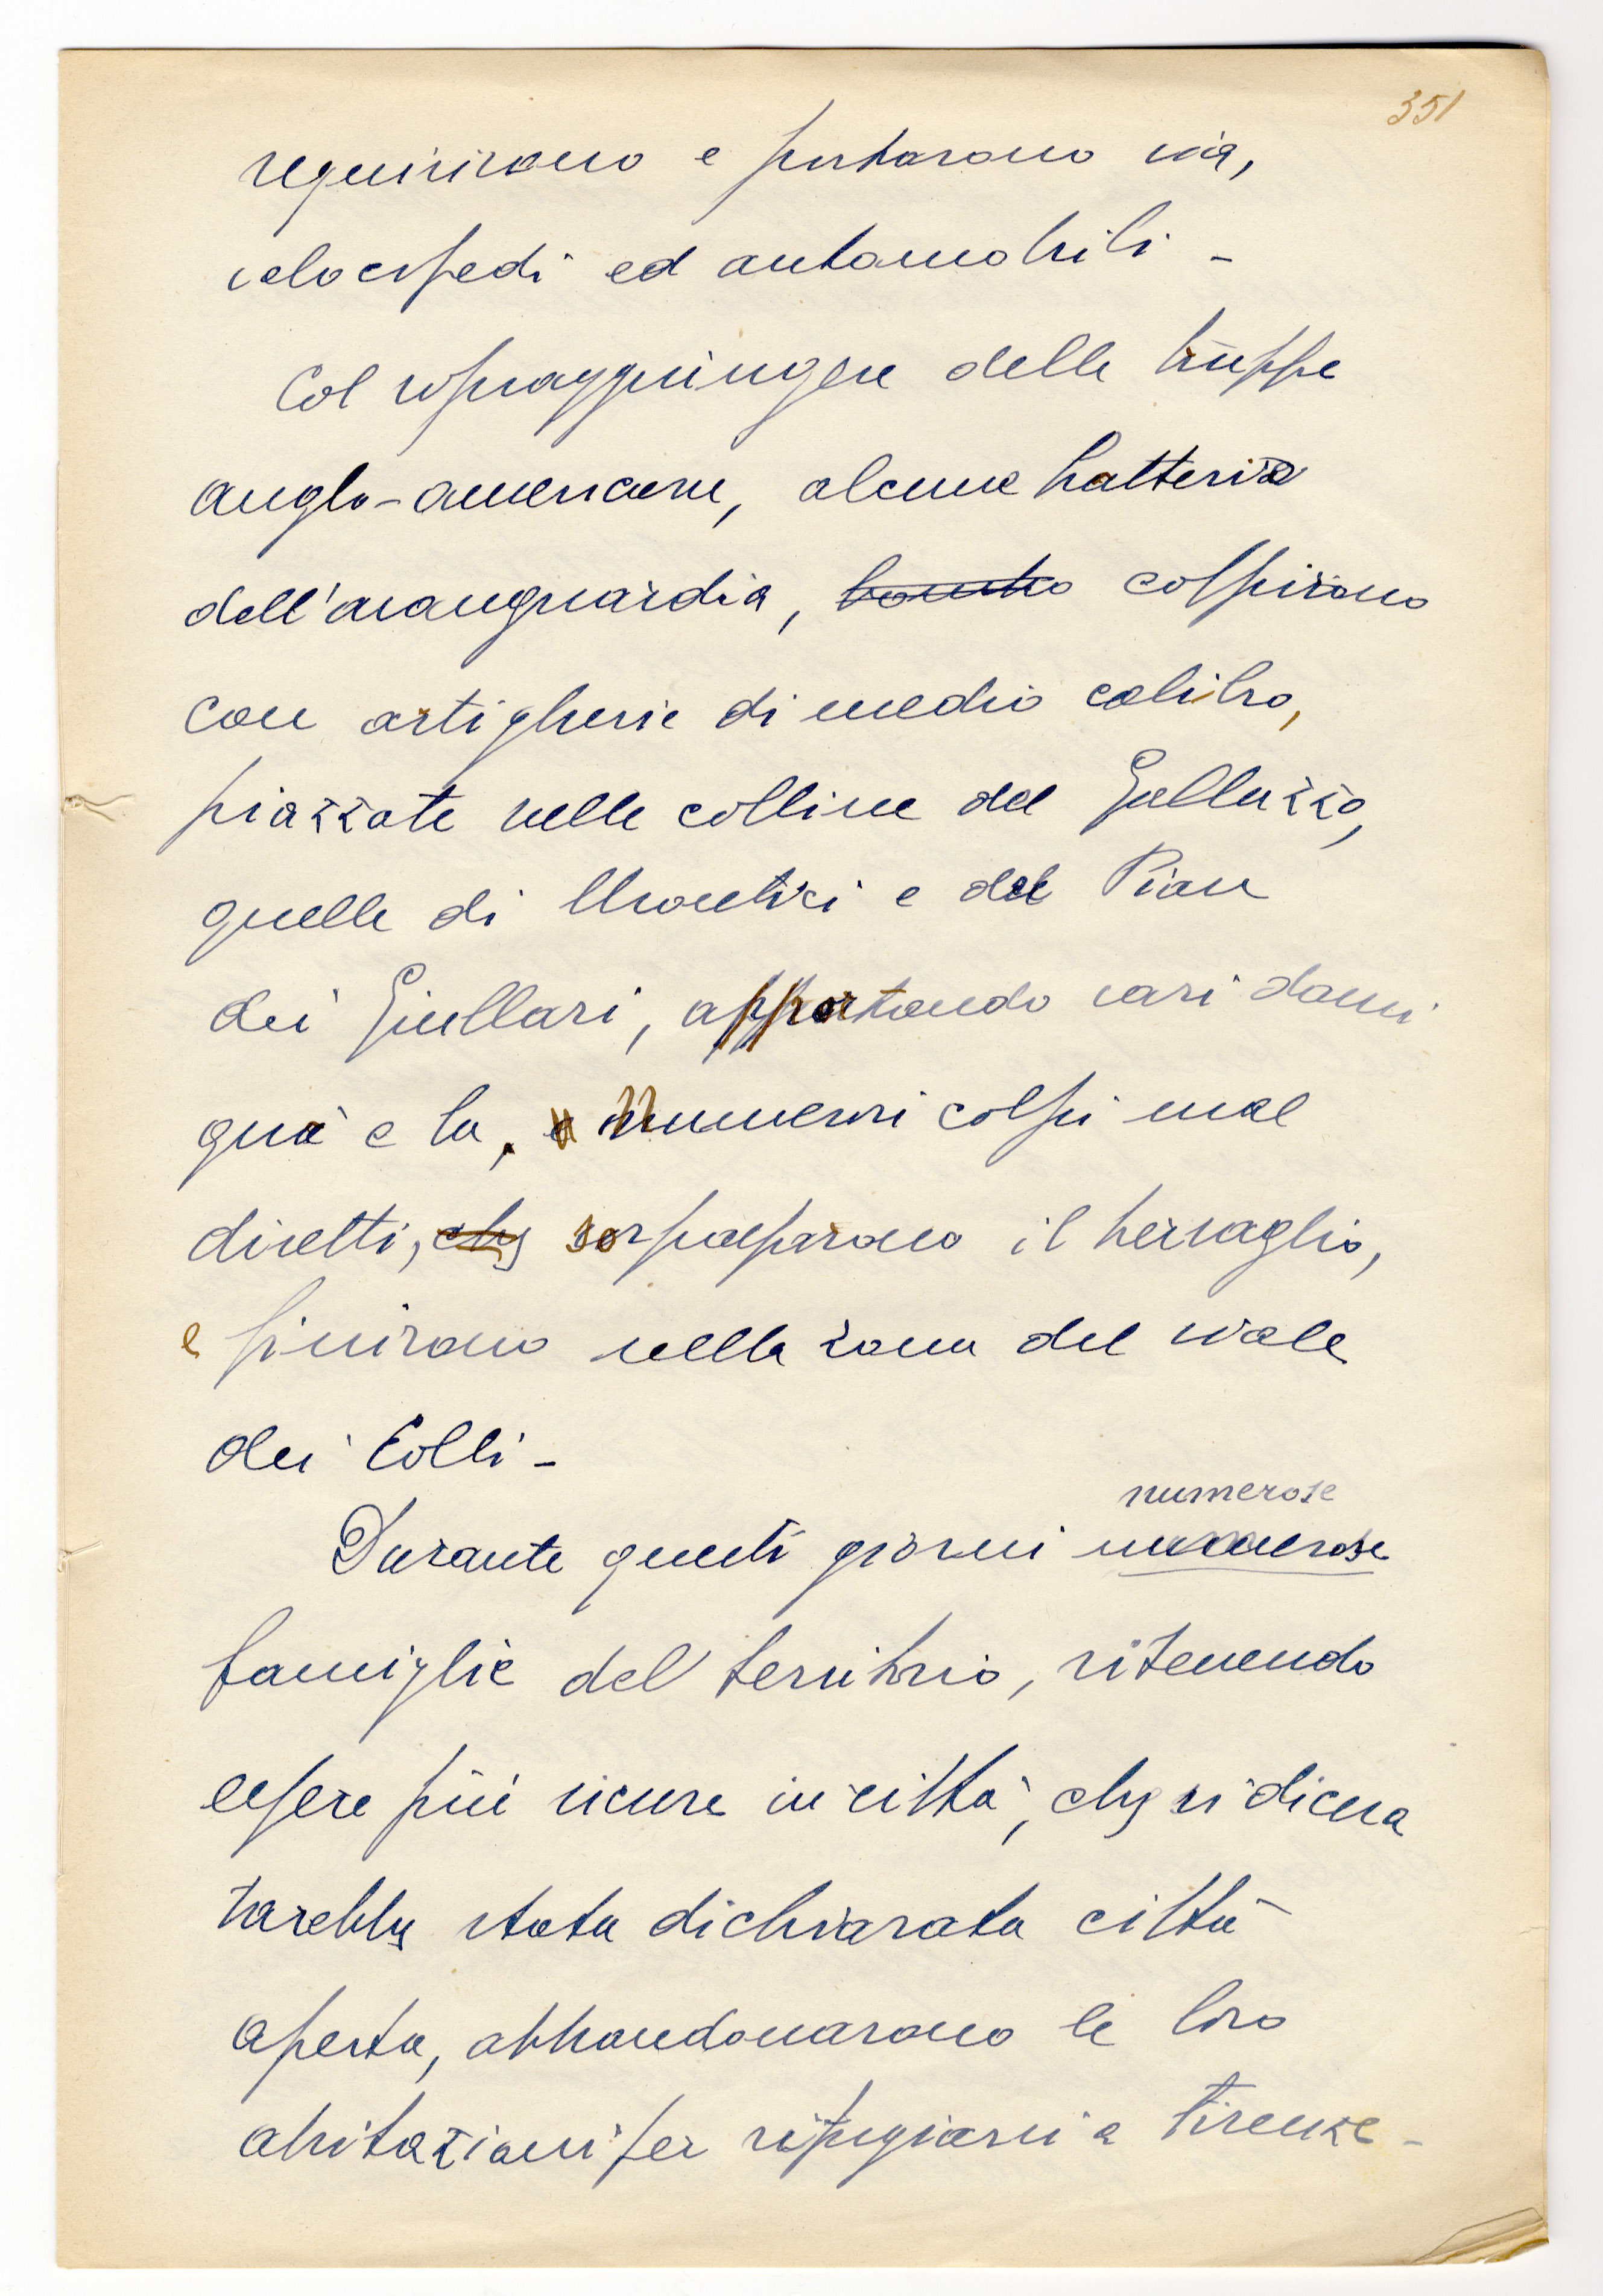 351
requisirono e portarono via,
velocipedi ed automobili -
Col sopraggiungere delle truppe
anglo-americane, alcune batterie
dell'avanguardia, colpirono
con artiglierie di medio calibro,
piazzate nelle colline del Galluzzo,
quelle di Montici e del Pian
dei Giullari, apportando vari danni
quà e la. Numerosi colpi mal
diretti, che sorpassarono il bersaglio,
e finirono nella zona del viale
dei Colli -
numerose
Durante questi giorni numerose
famiglie del territorio, ritenendo
essere più sicure in città, che si diceva
sarebbe stata dichiarata città
aperta, abbandonarono le loro
abitazioni per rifugiarsi a Firenze -